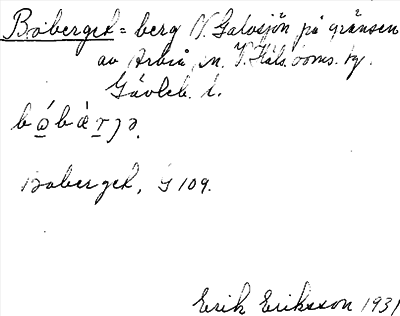 Boberget = berg N. Galvsjön på gränsen
av Arbrå sn. V. Häls. doms. hg.
Gävleb. l.
Boberget, G 109.
Erik Eriksson 1931